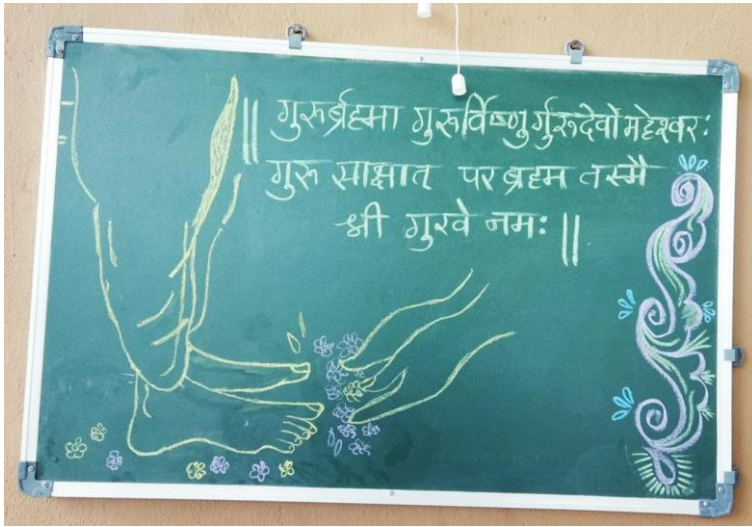 || गुरुर्ब्रह्मा गुरुर्विष्णुर्गुरुदेवो महेश्वरः
गुरु साक्षात् पर ब्रह्म तस्मै
श्री गुरवे नमः ||